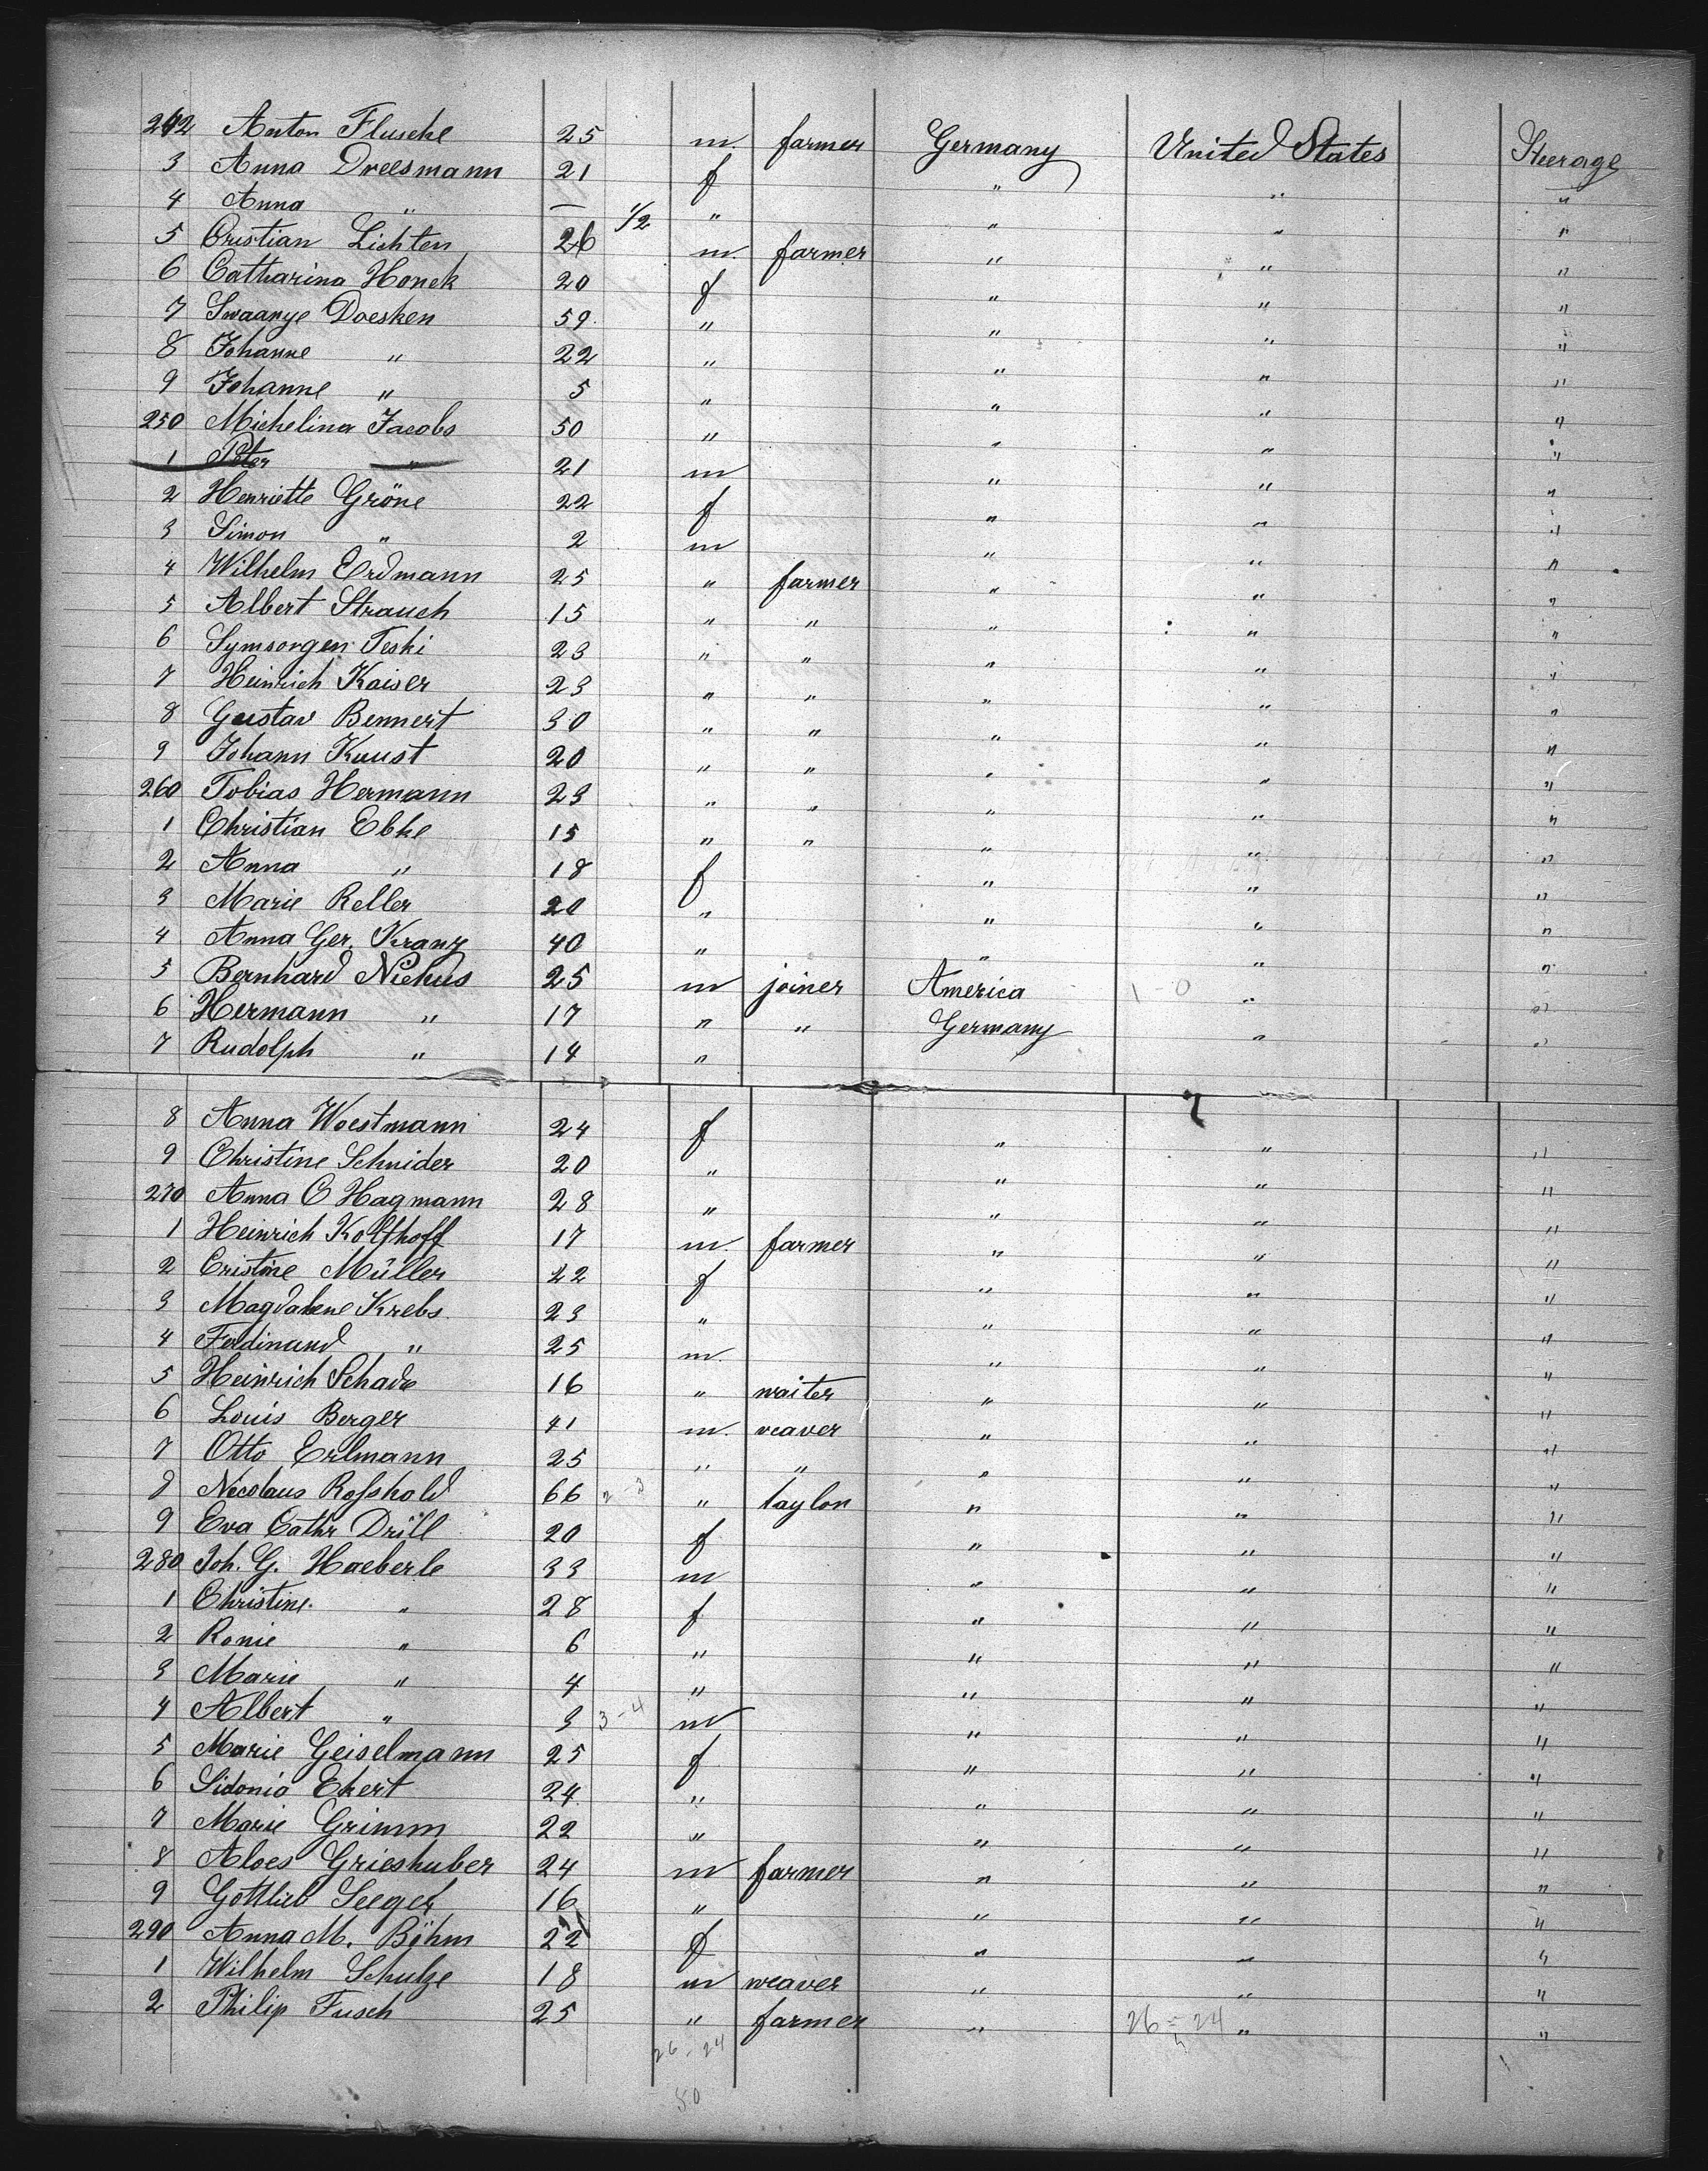 242 Anton Flusche 25 m. farmer Germany United States Steerage
3 Anna Dreesmann 21 f " " "
4 Anna " — 1/2 " " " "
5 Cristian Lichten 26 m. farmer " " "
6 Catharina Honek 20 f " " "
7 Swaanye Doesken 59. " " " "
8 Johanne " 22 " " " "
9 Johanne " 5 " " " "
250 Michelina Jacobs 50 " " " "
1 Peter " 21 m " " "
2 Henriette Gröne 22 f " " "
3 Simon " 2 m " " "
4 Wilhelm Erdmann 25 " farmer " " "
5 Albert Strauch 15 " " " " "
6 Symsorgen Teski 23 " " " " "
7 Heinrich Kaiser 23 " " " " "
8 Gustav Bennert 30 " " " " "
9 Johann Kuust 20 " " " " "
260 Tobias Hermann 23 " " " " "
1 Christian Ebke 15 " " " " "
2 Anna " 18 f " " "
3 Marie Reller 20 " " " "
4 Anna Ger. Kranz 40 " " " "
5 Bernhard Niehus 25 m joiner America 1-0 " "
6 Hermann " 17 " " Germany " "
7 Rudolph " 14 "
8 Anna Woestmann 24 f " " "
9 Christine Schnider 20 " " " "
270 Anna C Hagmann 28 " " " "
1 Heinrich Kolthoff 17 m. farmer " " "
2 Cristine Müller 22 f " " "
3 Magdalene Krebs 23 " " " "
4 Ferdinand " 25 m. " " "
5 Heinrich Schade 16 " waiter " " "
6 Louis Berger 41 m. veaver " " "
7 Otto Erlmann 25 " " " " "
8 Nicolaus Roßkold 66 2-3 " taylor " " "
9 Eva Cathr Drill 20 f " " "
280 Joh. G. Haeberle 33 m " " "
1 Christine " 28 f " " "
2 Ronie " 6 " " " "
3 Marie " 4 " " " "
4 Albert " 3 3-4 m " " "
5 Marie Geiselmann 25 f " " "
6 Sidonia Ekert 24 " " " "
7 Marie Grimm 22 " " " "
8 Aloes Grieshuber 24 m farmer " " "
9 Gottlieb Seeger 16 " " " "
290 Anna M. Böhm 22 f " " "
1 Wilhelm Schulze 18 m weaver " " "
2 Philip Fusch 25 " farmer " 26-24 " "
26-24
50